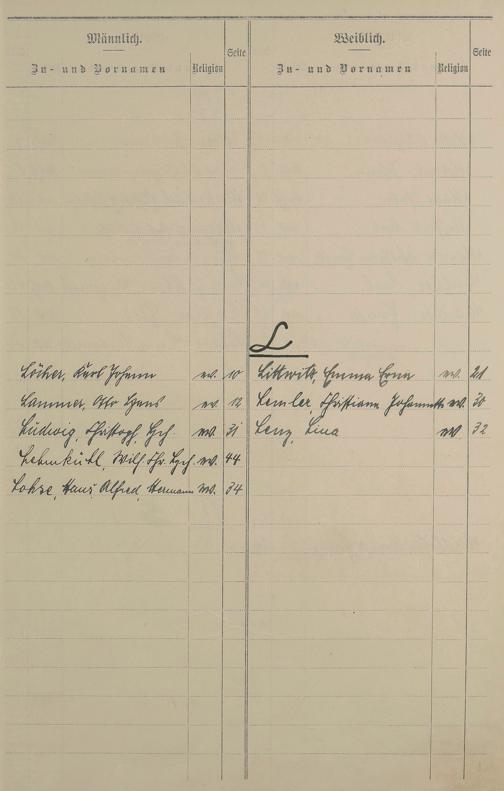 Männlich.
Zu- und Vornamen Religion Seite
Weiblich.
Zu- und Vornamen Religion Seite
L
Löcher, Karl Johann ev. 10
Lammer, Otto Hans ev 12
Ludwig, Christoph, Hch. ev. 31
Lehmkühl, Wilh. Chr. ev. 44
Lohse, Hans Alfred, Hermann ev. 34
Littwitt, Emma Erna ev. 21
Lemler, Christiane Johannette ev. 30
Lenz, Lina ev 32